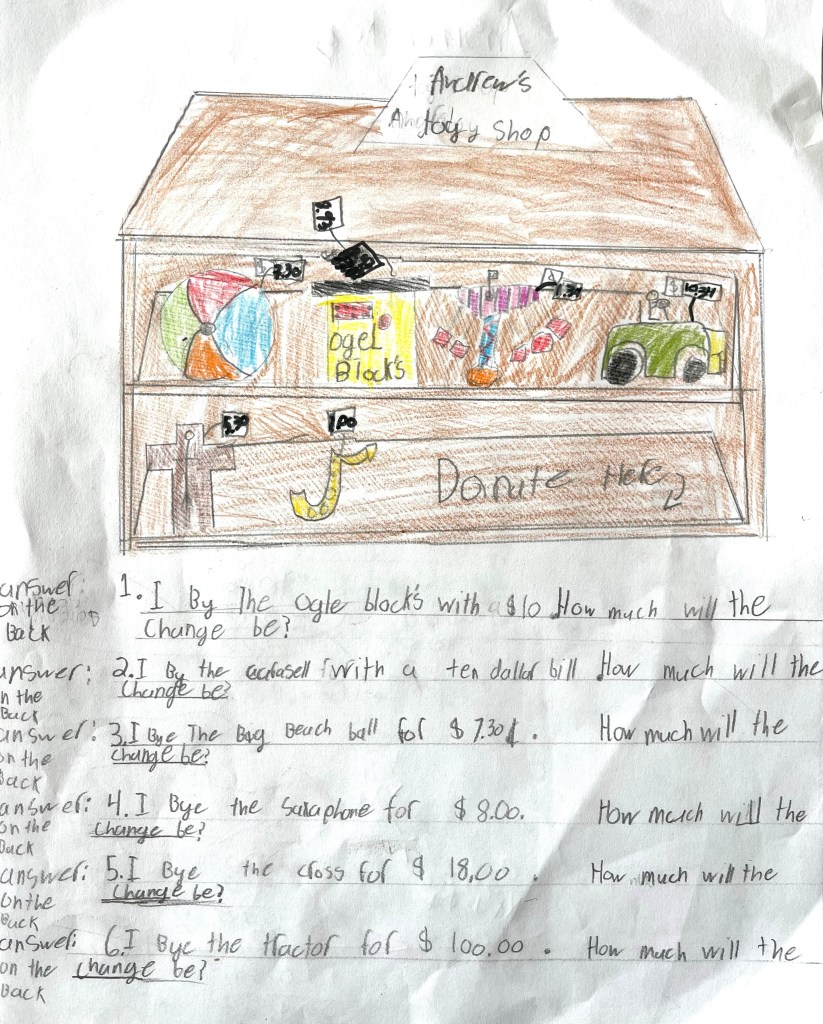 Andrew's
toy Shop
7.30
$
ogel
Block's
1.00
Donate Here
answer: 1. I By The ogle block's with $10 How much will the
on the
Back change be?
answer: 2. I By the with a ten dollar bill How much will the
on the change be?
Back
answer: 3. I Bye The Big Beach ball for $ 7.30 . How much will the
on the change be?
Back
answer: 4. I Bye the saxaphone for $ 8.00. How much will the
on the change be?
Back
answer: 5. I Bye the cross for $ 18,00 . How much will the
on the change be?
Back
answer: 6. I Bye the tractor for $ 100.00 . How much will the
on the change be?
Back